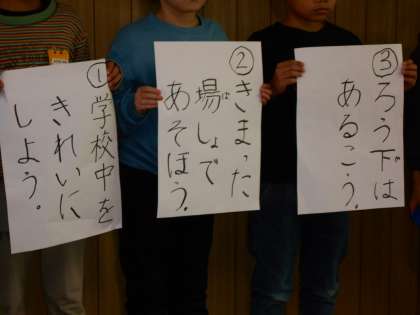 ①学校中を
きれいに
しよう。
②きまった
場しょで
あそぼう。
③ろう下は
あるこう。